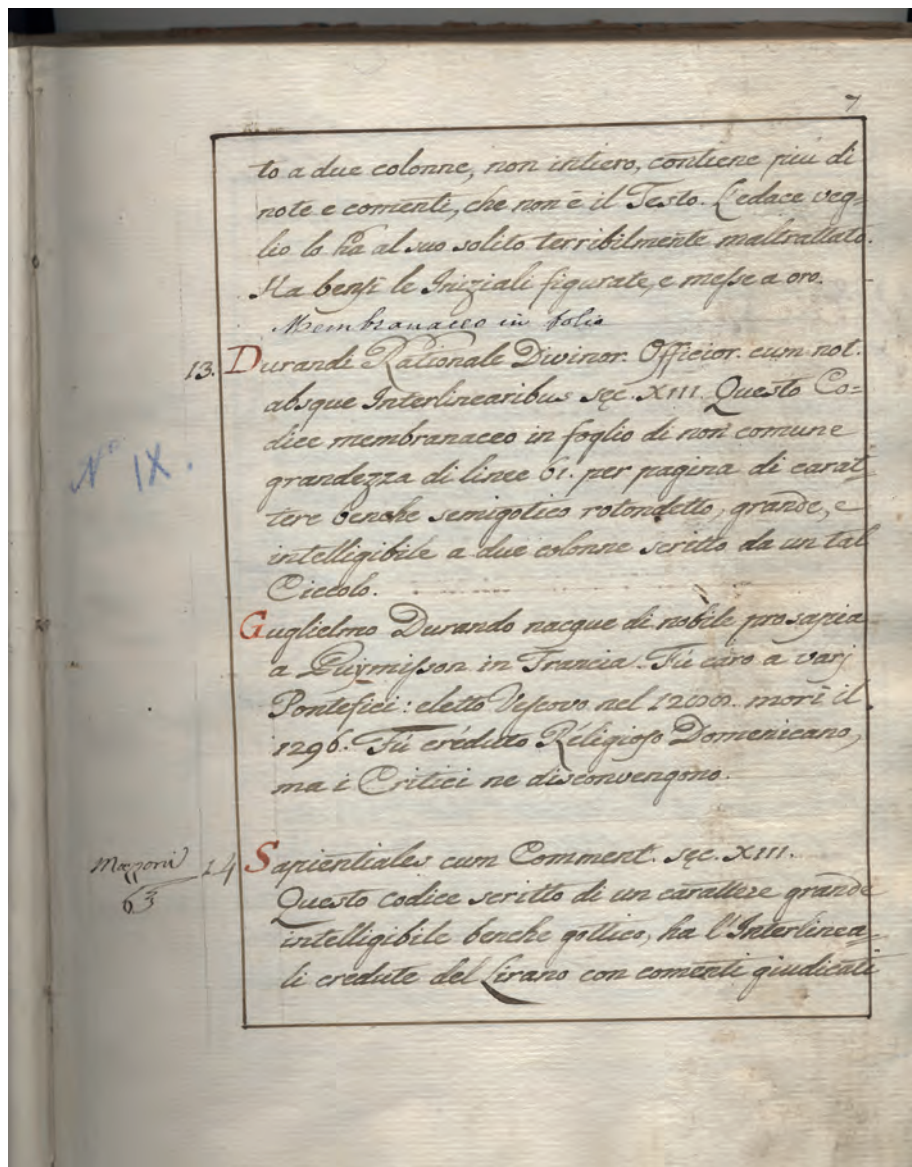 7
to a due colonne, non intiero, contiene piu di
note e comenti, che non è il Testo. L'edace veg=
lio lo ha al suo solito terribilmente maltrattato.
Ha bensi le Iniziali figurate, e messe a oro.
Membranaceo in folio
13. Durandi Rationale Divinor. Officior. cum not.
absque Interlinearibus sęc. XIII. Questo Co=
dice membranaceo in foglio di non comune
N° IX.
grandezza di linee 61. per pagina di carat=
tere benche semigotico rotondetto, grande, e
intelligibile a due colonne scritto da un tal
Ciccolo.
Guglielmo Durando nacque di nobile prosapia
a Puymisson in Francia. Fú caro a varj
Pontefici: eletto Vescovo nel morì il
1296. Fú creduto Religioso Domenicano,
ma i Critici ne disconvengono.
14 Sapientiales cum Comment. sęc. XIII.
63
Questo codice scritto di un carattere grande
intelligibile benche gottico, ha l'Interlinea=
li credute del Lirano con comenti giudicati